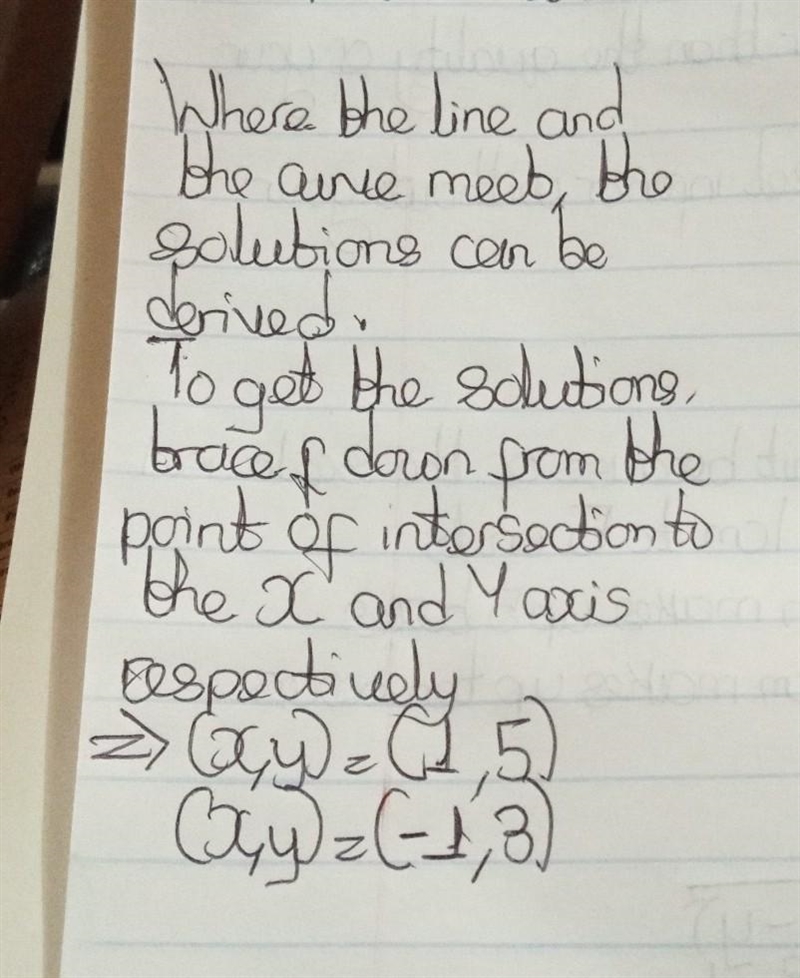 Where the line and
the curve meet, the
solutions can be
derived.
To get the solutions,
trace f down from the
point of intersection to
the x and Y axis
respectively
⇒ (x,y) = (1,5)
(x,y) = (-1,3)